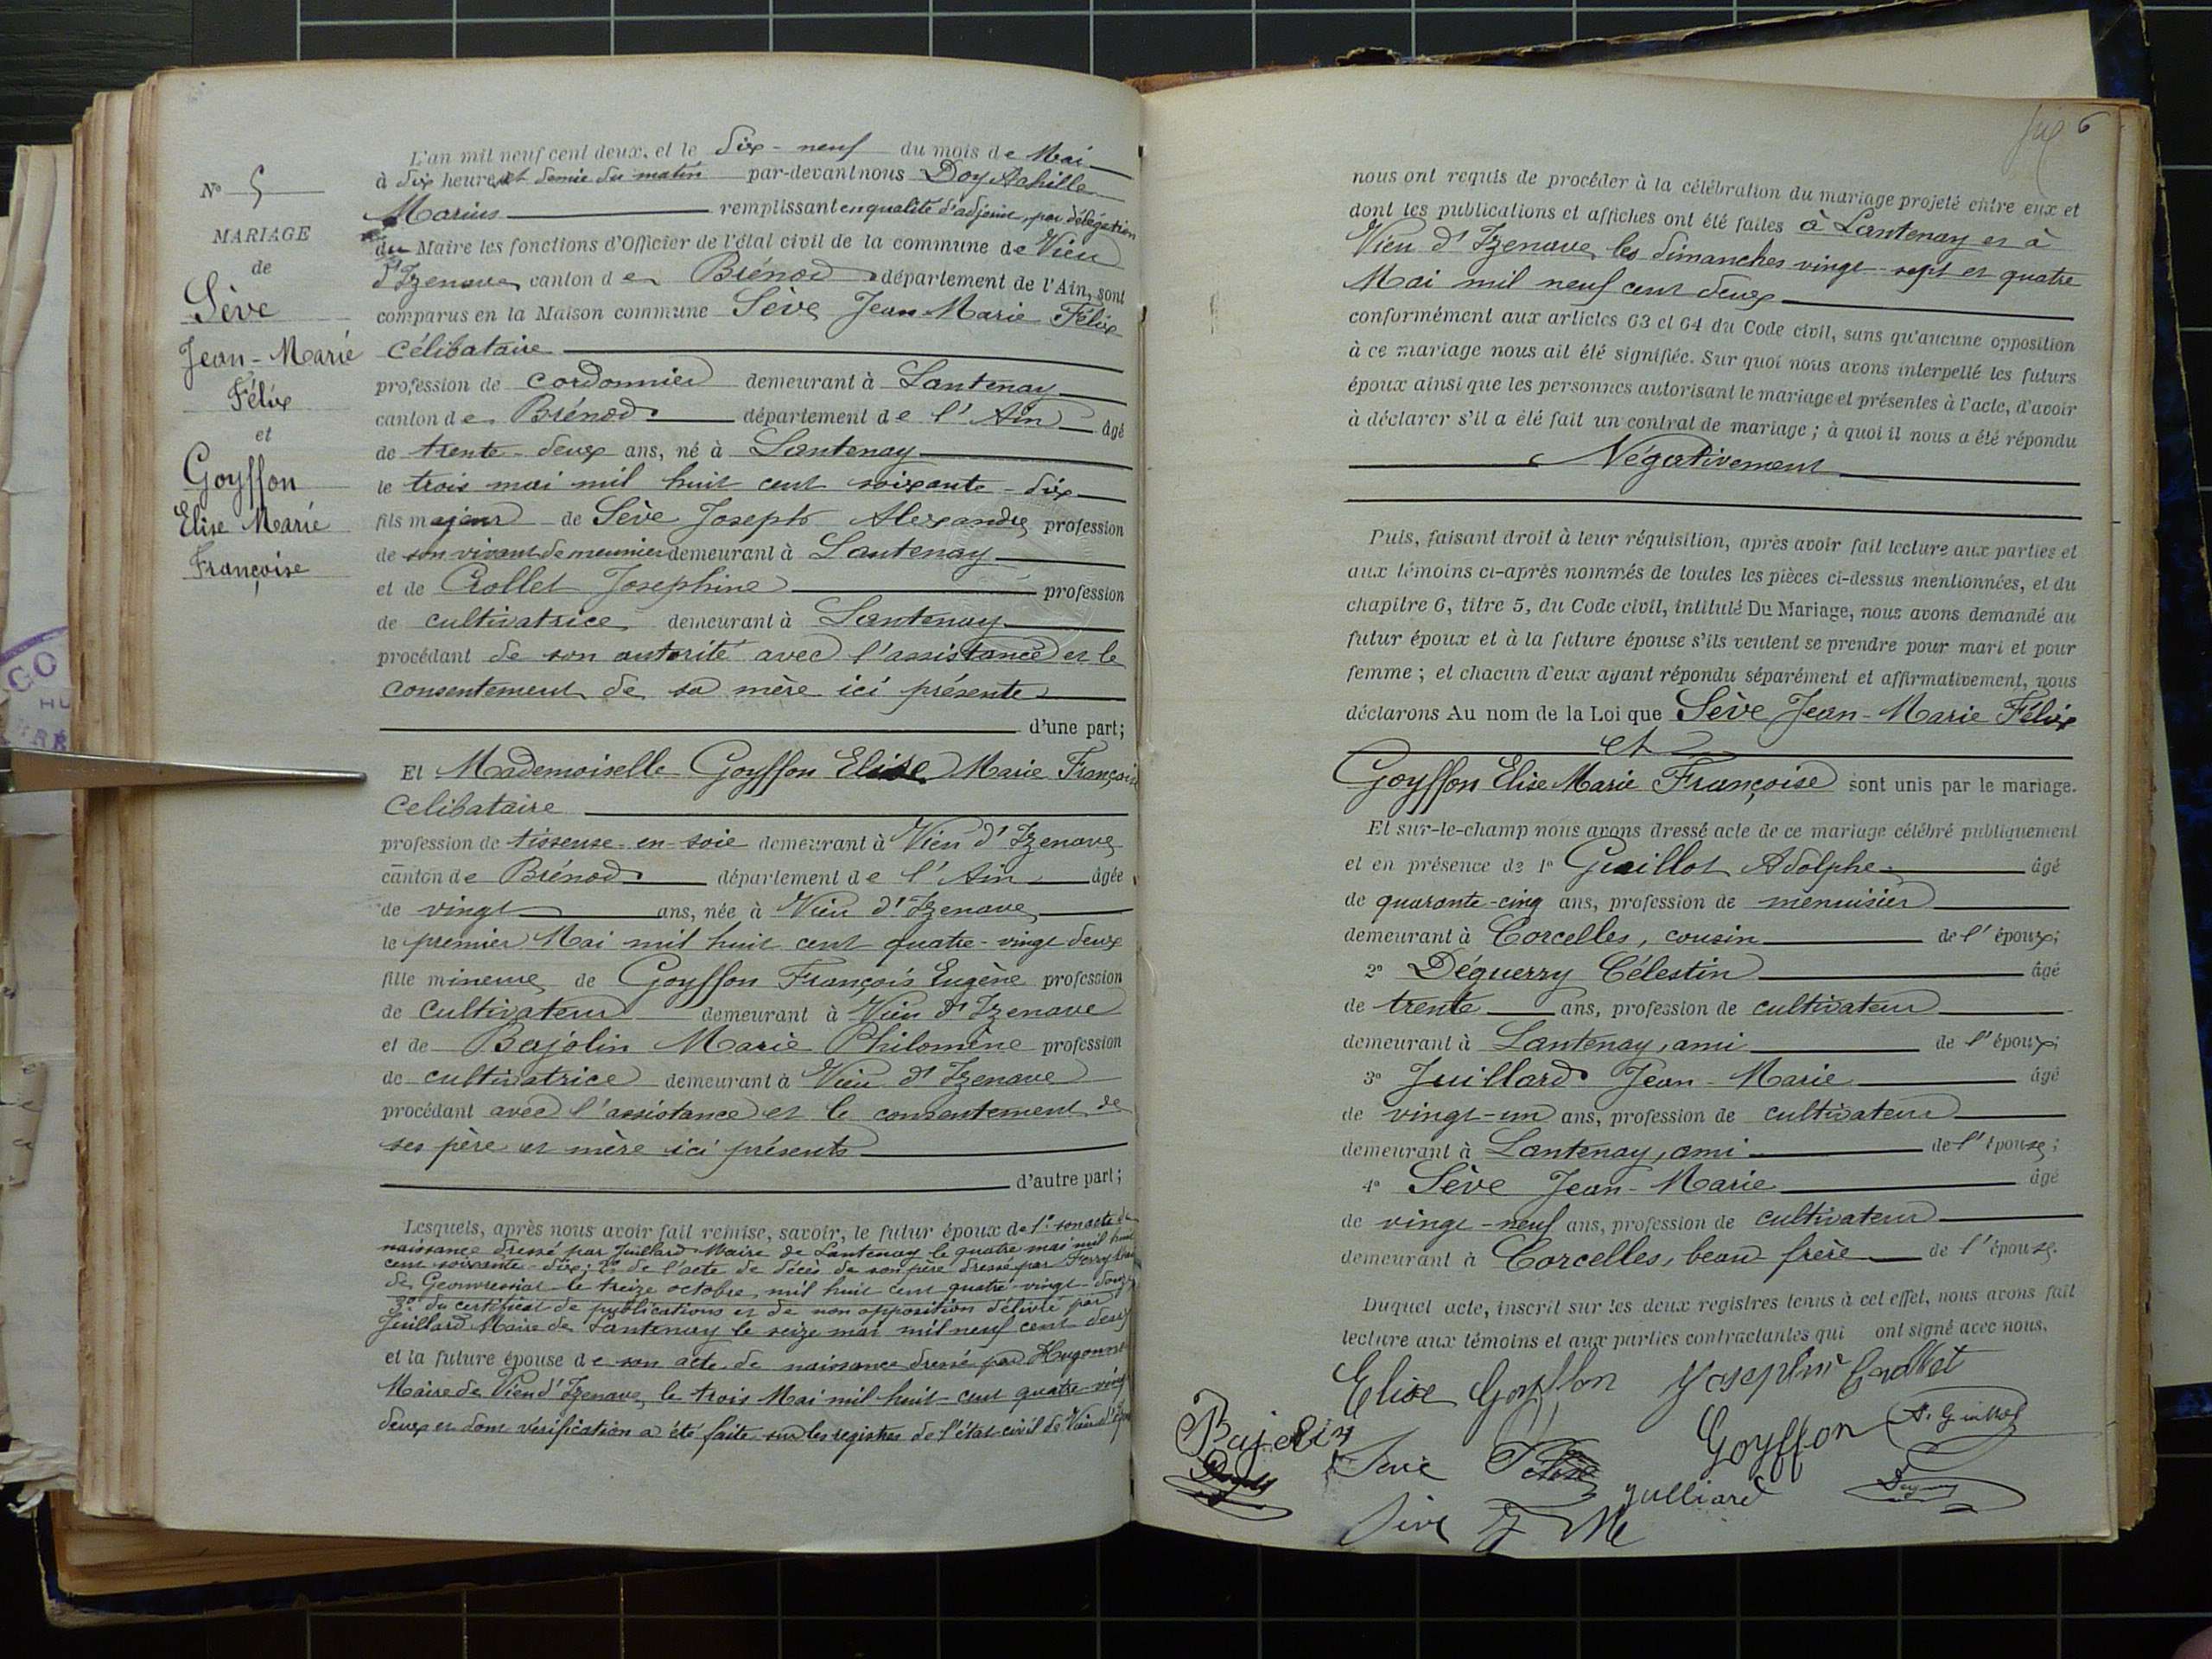 N° 5
MARIAGE
de
Sève
Jean-Marie
Félix
et
Goyffon
Elise Marie
Françoise
L'an mil neuf cent deux, et le dix-neuf du mois de Mai
à dix heures et demie du matin par-devant nous Doy Achille
Marius remplissant en qualité d'adjoint, par délégation
du Maire les fonctions d'Officier de l'état civil de la commune de Vieu
d'Izenave, canton de Brénod département de l'Ain, sont
comparus en la Maison commune Sève Jean-Marie Félix
célibataire
profession de cordonnier demeurant à Lantenay
canton de Brénod département de l'Ain âgé
de trente-deux ans, né à Lantenay
le trois mai mil huit cent soixante-dix
fils majeur de Sève Joseph Alexandre profession
de son vivant de meunier demeurant à Lantenay
et de Crollet Josephine profession
de cultivatrice demeurant à Lantenay
procédant de son autorité avec l'assistance et le
consentement de sa mère ici présente
d'une part;
Et Mademoiselle Goyffon Elise Marie Françoise
Celibataire
profession de tisseuse-en-soie demeurant à Vieu d'Izenave
canton de Brénod département de l'Ain âgée
de vingt ans, née à Vieu d'Izenave
le premier Mai mil huit cent quatre-vingt deux
fille mineure de Goyffon François Eugène profession
de cultivateur demeurant à Vieu d'Izenave
et de Bajolin Marie Philomène profession
de cultivatrice demeurant à Vieu d'Izenave
procédant avec l'assistance et le consentement de
ses père et mère ici présents
d'autre part;
Lesquels, après nous avoir fait remise, savoir, le futur époux de 1° son acte de
naissance dressé par Juillard Maire de Lantenay le quatre mai mil huit
cent soixante-dix; 2° de l'acte de décès de son père dressé par Ferry
de Géovressiat le treize octobre mil huit cent quatre-vingt-douze
3° du certificat de publications et de non opposition délivré par
Juillard Maire de Lantenay le seize mai mil neuf cent deux
et la future épouse de son acte de naissance dressé par Hugonnet
Maire de Vieu d'Izenave, le trois Mai mil huit-cent quatre-vingt
deux et dont vérification a été faite sur les registres de l'état-civil de Vieu d'Izenave
6
nous ont requis de procéder à la célébration du mariage projeté entre eux et
dont les publications et affiches ont été faites à Lantenay et à
Vieu d'Izenave les dimanches vingt-sept et quatre
Mai mil neuf cent deux
conformément aux articles 63 et 64 du Code civil, sans qu'aucune opposition
à ce mariage nous ait été signifiée. Sur quoi nous avons interpellé les futurs
époux ainsi que les personnes autorisant le mariage et présentes à l'acte, d'avoir
à déclarer s'il a été fait un contrat de mariage; à quoi il nous a été répondu
Négativement
Puis, faisant droit à leur réquisition, après avoir fait lecture aux parties et
aux témoins ci-après nommés de toutes les pièces ci-dessus mentionnées, et du
chapitre 6, titre 5, du Code civil, intitulé Du Mariage, nous avons demandé au
futur époux et à la future épouse s'ils veulent se prendre pour mari et pour
femme; et chacun d'eux ayant répondu séparément et affirmativement, nous
déclarons Au nom de la Loi que Sève Jean-Marie Félix
et
Goyffon Elise Marie Françoise sont unis par le mariage.
Et sur-le-champ nous avons dressé acte de ce mariage célébré publiquement
et en présence de 1° Guillot Adolphe âgé
de quarante-cinq ans, profession de menuisier
demeurant à Corcelles, cousin de l'époux;
2° Déguerry Célestin âgé
de trente ans, profession de cultivateur
demeurant à Lantenay, ami de l'époux;
3° Juillard Jean-Marie âgé
de vingt-un ans, profession de cultivateur
demeurant à Lantenay, ami de l'épouse;
4° Sève Jean-Marie âgé
de vingt-neuf ans, profession de cultivateur
demeurant à Corcelles, beau frère de l'épouse.
Duquel acte, inscrit sur les deux registres tenus à cet effet, nous avons fait
lecture aux témoins et aux parties contractantes qui ont signé avec nous.
Elise Goyffon Josephine Crollet
Bajolin Seve Félix Goyffon A. Guillot
Julliard
Sève J M